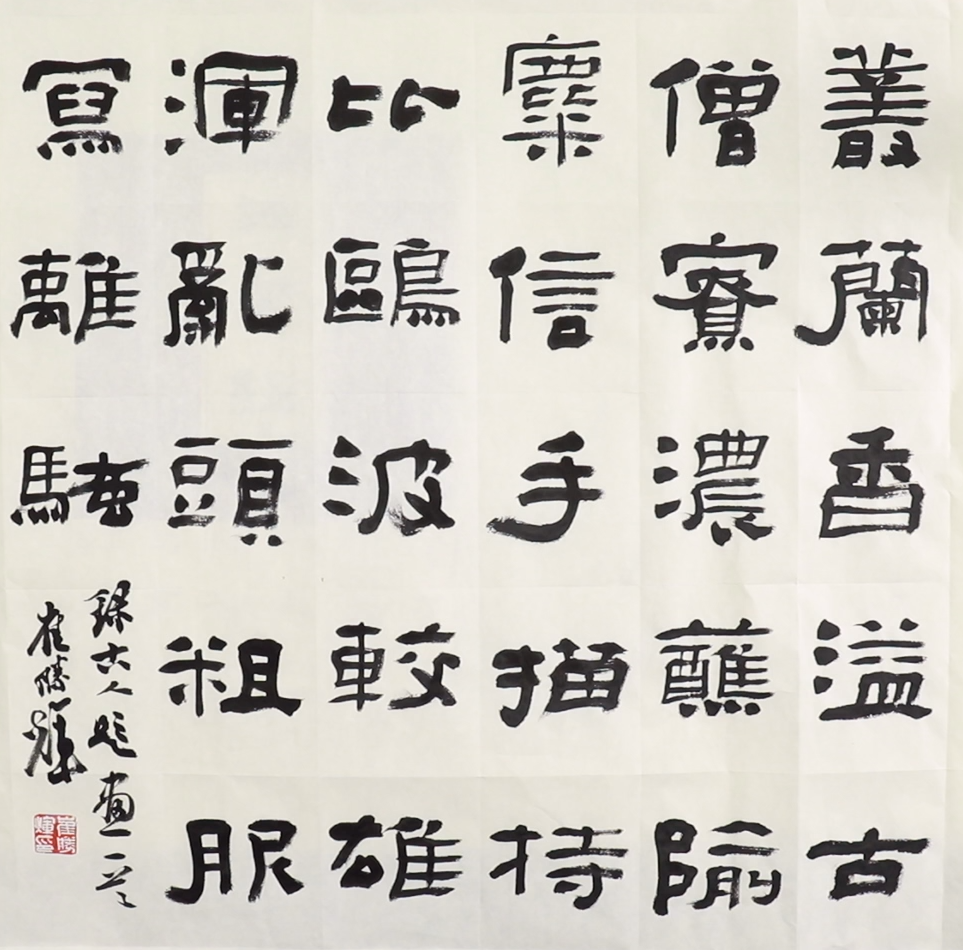 叢蘭香溢古
僧寮濃蘸隃
麋信手描持
比鷗波較雄
渾亂頭粗服
寫離騷
錄古人題畫一首
崔勝輝
崔勝
輝印